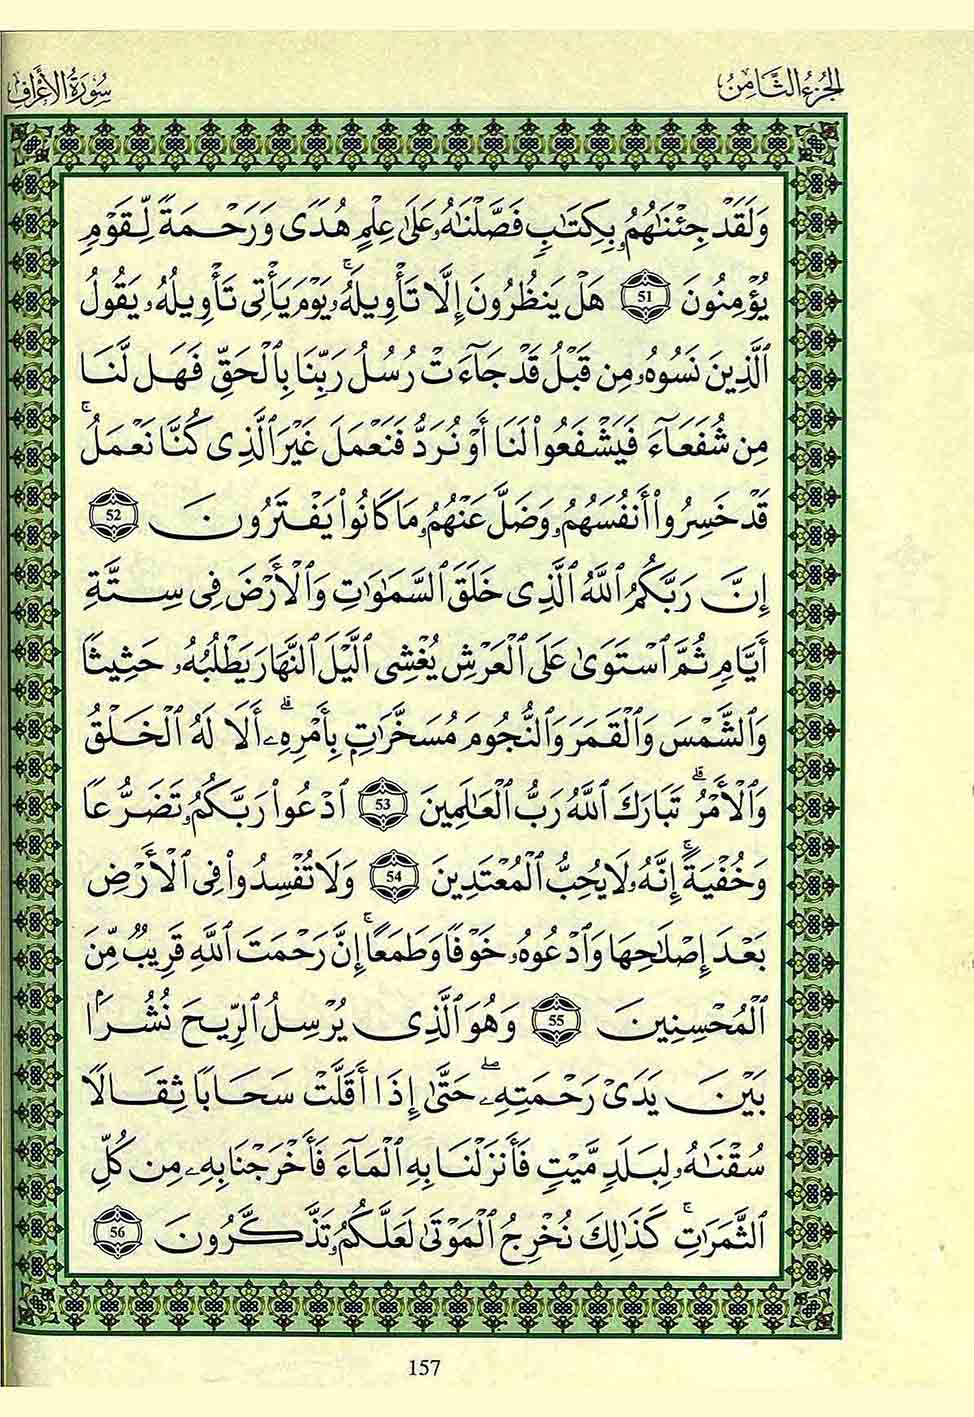 الجزء الثامن
سورة الأعراف
وَلَقَدْ جِئْنَٰهُمُۥ بِكِتَٰبٖ فَصَّلْنَٰهُۥ عَلَىٰ عِلْمٍ هُدٗى وَرَحْمَةٗ لِّقَوْمٖ
يُؤْمِنُونَ 51 هَلْ يَنظُرُونَ إِلَّا تَأْوِيلَهُۥۚ يَوْمَ يَأْتِى تَأْوِيلُهُۥ يَقُولُ
ٱلَّذِينَ نَسُوهُۥ مِن قَبْلُ قَدْ جَآءَتْ رُسُلُ رَبِّنَا بِٱلْحَقِّ فَهَل لَّنَا
مِن شُفَعَآءَ فَيَشْفَعُواْ لَنَا أَوْ نُرَدُّ فَنَعْمَلَ غَيْرَ ٱلَّذِى كُنَّا نَعْمَلُۚ
قَدْ خَسِرُواْ أَنفُسَهُمُۥ وَضَلَّ عَنْهُمُۥ مَا كَانُواْ يَفْتَرُونَ 52
إِنَّ رَبَّكُمُ ٱللَّهُ ٱلَّذِى خَلَقَ ٱلسَّمَٰوَٰتِ وَٱلْأَرْضَ فِى سِتَّةِ
أَيَّامٖ ثُمَّ ٱسْتَوَىٰ عَلَى ٱلْعَرْشِ يُغْشِى ٱلَّيْلَ ٱلنَّهَارَ يَطْلُبُهُۥ حَثِيثٗا
وَٱلشَّمْسَ وَٱلْقَمَرَ وَٱلنُّجُومَ مُسَخَّرَٰتِۭ بِأَمْرِهِۦۗ أَلَا لَهُ ٱلْخَلْقُ
وَٱلْأَمْرُۗ تَبَارَكَ ٱللَّهُ رَبُّ ٱلْعَٰلَمِينَ 53 ٱدْعُواْ رَبَّكُمُۥ تَضَرُّعٗا
وَخُفْيَةًۚ إِنَّهُۥ لَا يُحِبُّ ٱلْمُعْتَدِينَ 54 وَلَا تُفْسِدُواْ فِى ٱلْأَرْضِ
بَعْدَ إِصْلَٰحِهَا وَٱدْعُوهُۥ خَوْفٗا وَطَمَعًاۚ إِنَّ رَحْمَتَ ٱللَّهِ قَرِيبٞ مِّنَ
ٱلْمُحْسِنِينَ 55 وَهُوَ ٱلَّذِى يُرْسِلُ ٱلرِّيحَ نُشُرَۢا
بَيْنَ يَدَىْ رَحْمَتِهِۦۖ حَتَّىٰ إِذَا أَقَلَّتْ سَحَابٗا ثِقَالٗا
سُقْنَٰهُۥ لِبَلَدٖ مَّيْتٖ فَأَنزَلْنَا بِهِ ٱلْمَآءَ فَأَخْرَجْنَا بِهِۦ مِن كُلِّ
ٱلثَّمَرَٰتِۚ كَذَٰلِكَ نُخْرِجُ ٱلْمَوْتَىٰ لَعَلَّكُمُۥ تَذَّكَّرُونَ 56
157